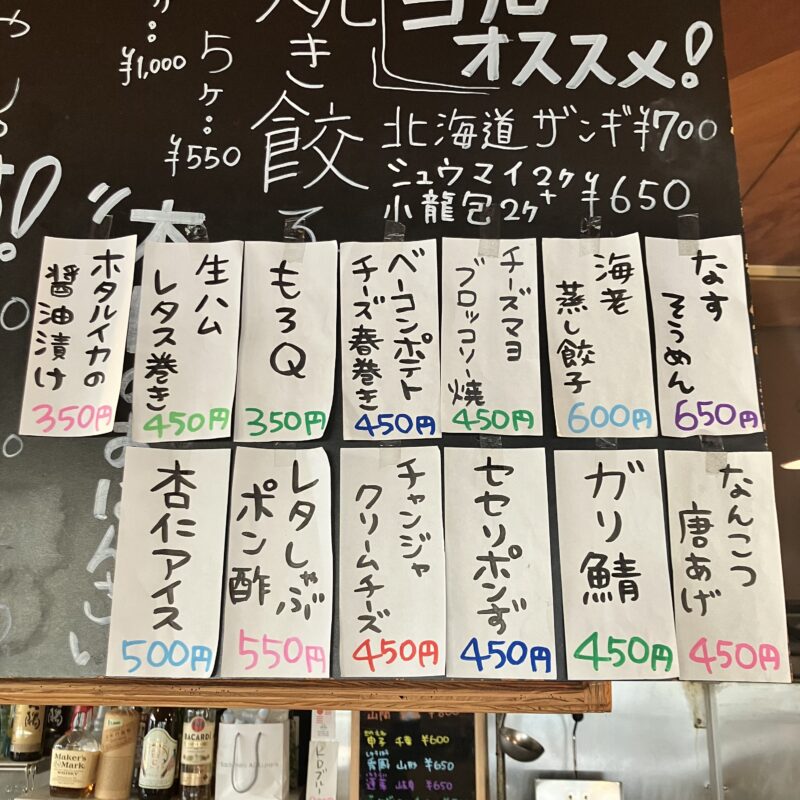 オススメ!
北海道ザンギ ¥700
シュウマイ2ヶ+
小龍包2ヶ
¥650
焼き餃
5ヶ:
¥550
¥1,000
なす
そうめん
650円
海老
蒸し餃子
600円
チーズマヨ
ブロッコリー焼
450円
ベーコンポテト
チーズ春巻き
450円
もろQ
350円
生ハム
レタス巻き
450円
ホタルイカの
醤油漬け
350円
なんこつ
唐あげ
450円
ガリ鯖
450円
セセリポンず
450円
チャンジャ
クリームチーズ
450円
レタしゃぶ
ポン酢
550円
杏仁アイス
500円
Maker's Mark
WHISKY
BACARDI
¥600
¥650
¥650